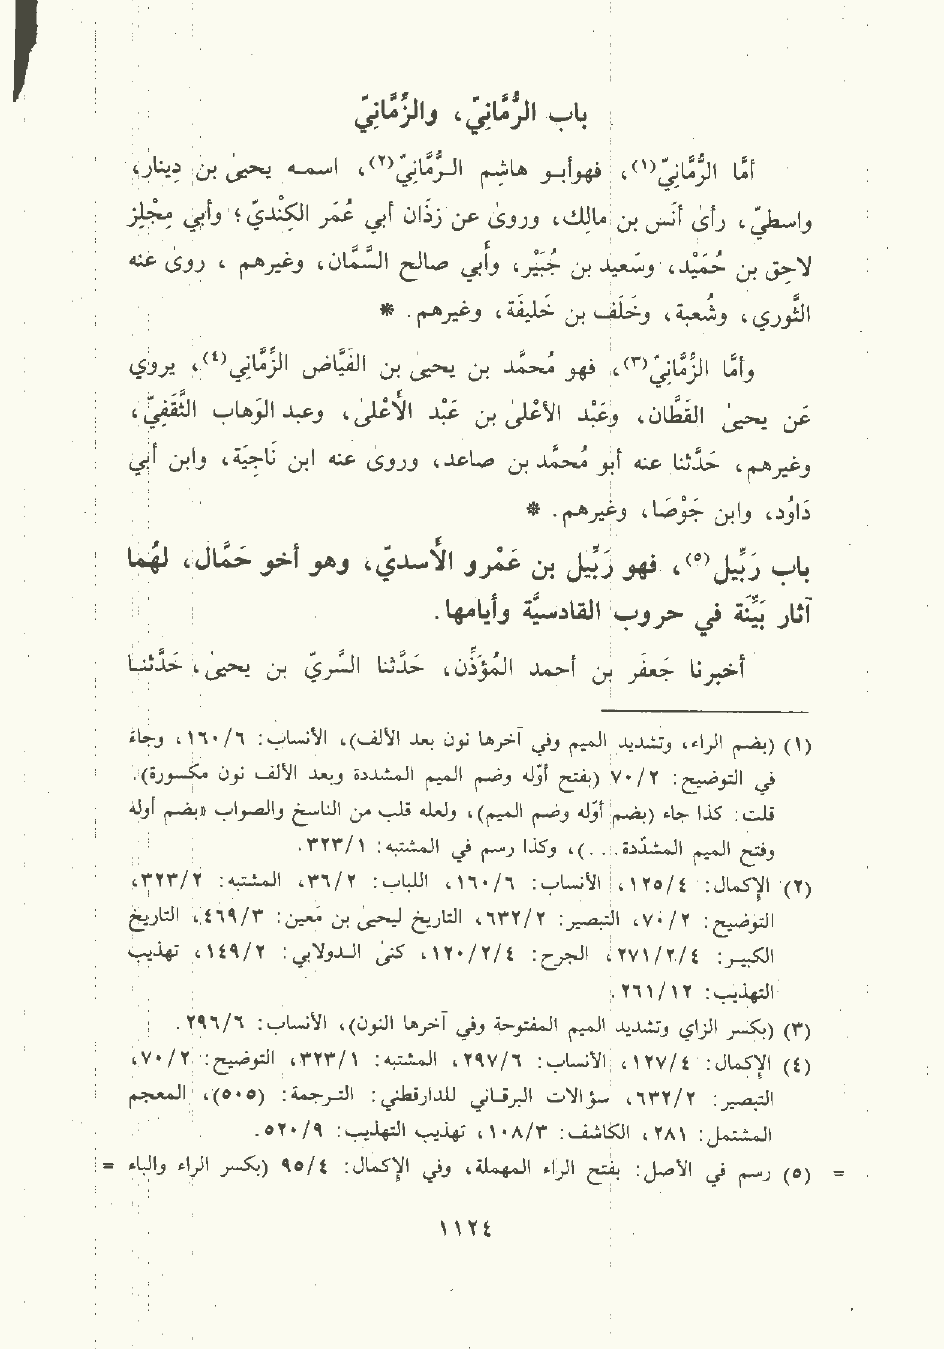 باب الرُّمَّانِيّ، والزُمَّانِيّ
أمَّا الرُّمَّانِيّ(١)، فهوأبو هاشِم الرُّمَّانِيّ(٢)، اسمه يحيىٰ بن دِينار،
واسطيّ، رأىٰ أنَس بن مالِك، وروىٰ عن زذَان أبي عُمَر الكِنْديّ؛ وأبي مِجْلِز
لاحِق بن حُمَيْد، وسَعيد بن جُبَيْر، وأَبي صالح السَّمَّان، وغيرهم ، روىٰ عنه
الثَّوري، وشُعبة، وخَلَف بن خَليفَة، وغيرهم. *
وأمَّا الزِّمَّانِيّ(٣)، فهو مُحمَّد بن يحيىٰ بن الفَيَّاض الزِّمَّانِي(٤)، يروي
عَن يحيىٰ القَطَّان، وعَبْد الأعْلىٰ بن عَبْد الأَعْلىٰ، وعبد الوَهاب الثَّقَفِيّ،
وغيرهم، حَدَّثنا عنه أبو مُحمَّد بن صاعد، وروىٰ عنه ابن نَاجِيَة، وابن أبي
دَاوُد، وابن جَوْصَا، وغيرهم. *
باب رَبِّيل(٥)، فهو رَبِّيل بن عَمْرو الأَسديّ، وهو أخو حَمَّال، لهُما
آثار بَيِّنَة في حروب القادسيَّة وأيامها.
أخبرنا جَعفَر بن أحمد المُؤَذِّن، حَدَّثنا السَّريّ بن يحيىٰ، حَدَّثنا
(١) (بضم الراء، وتشديد الميم وفي آخرها نون بعد الألف)، الأنساب: ١٦٠/٦، وجاءَ
في التوضيح: ٧٠/٢ (بفتح أوّله وضم الميم المشددة وبعد الألف نون مكسورة).
قلت: كذا جاء (بضم أوّله وضم الميم)، ولعله قلب من الناسخ والصواب «بضم أوله
وفتح الميم المشدّدة. . .)، وكذا رسم في المشتبه: ٣٢٣/١.
(٢) الإكمال: ١٢٥/٤، الأنساب: ١٦٠/٦، اللباب: ٣٦/٢، المشتبه: ٣٢٣/٢،
التوضيح: ٧٠/٢، التبصير: ٦٣٢/٢، التاريخ ليحيىٰ بن مَعين: ٤٦٩/٣، التاريخ
الكبير: ٢٧١/٢/٤، الجرح: ١٢٠/٢/٤، كنىٰ الدولابي: ١٤٩/٢، تهذيب
التهذيب: ٢٦١/١٢.
(٣) (بكسر الزاي وتشديد الميم المفتوحة وفي آخرها النون)، الأنساب: ٢٩٦/٦.
(٤) الإكمال: ١٢٧/٤، الأنساب: ٢٩٧/٦، المشتبه: ٣٢٣/١، التوضيح: ٧٠/٢،
التبصير: ٦٣٢/٢، سؤالات البرقاني للدارقطني: الترجمة: (٥٠٥)، المعجم
المشتمل: ٢٨١، الكاشف: ١٠٨/٣، تهذيب التهذيب: ٥٢٠/٩.
= (٥) رسم في الأصل: بفتح الراء المهملة، وفي الإكمال: ٩٥/٤ (بكسر الراء والباء =
١١٢٤